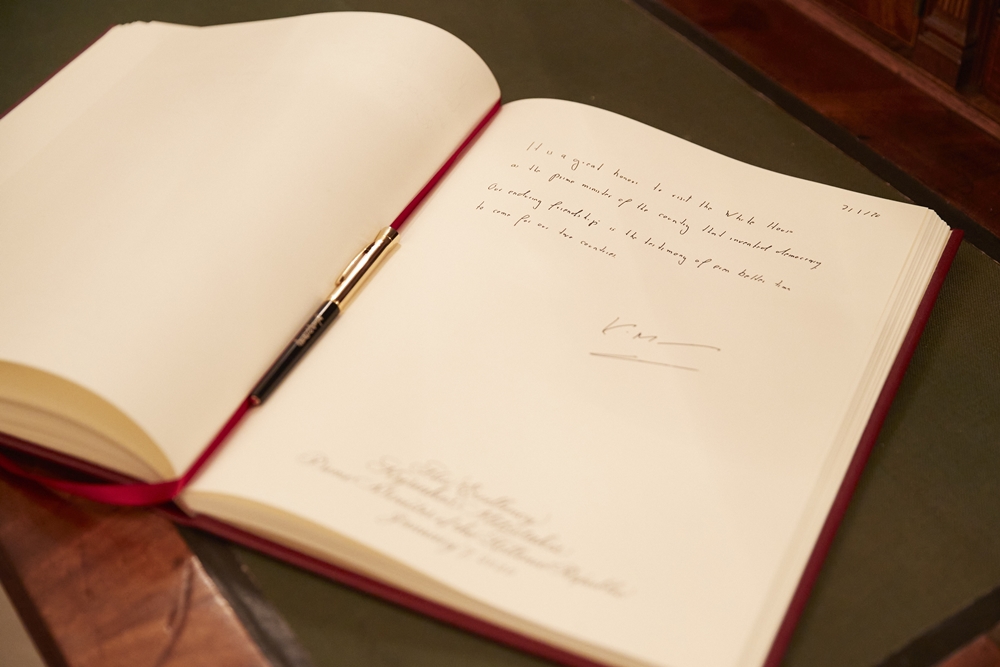 7/1/20
It is a great honor to visit the White House
as the prime minister of the country that invented democracy
Our enduring friendship is the testimony of even better time
to come for our two countries
K.M
His Excellency
Kyriakos Mitsotakis
Prime Minister of the Hellenic Republic
January 7, 2020